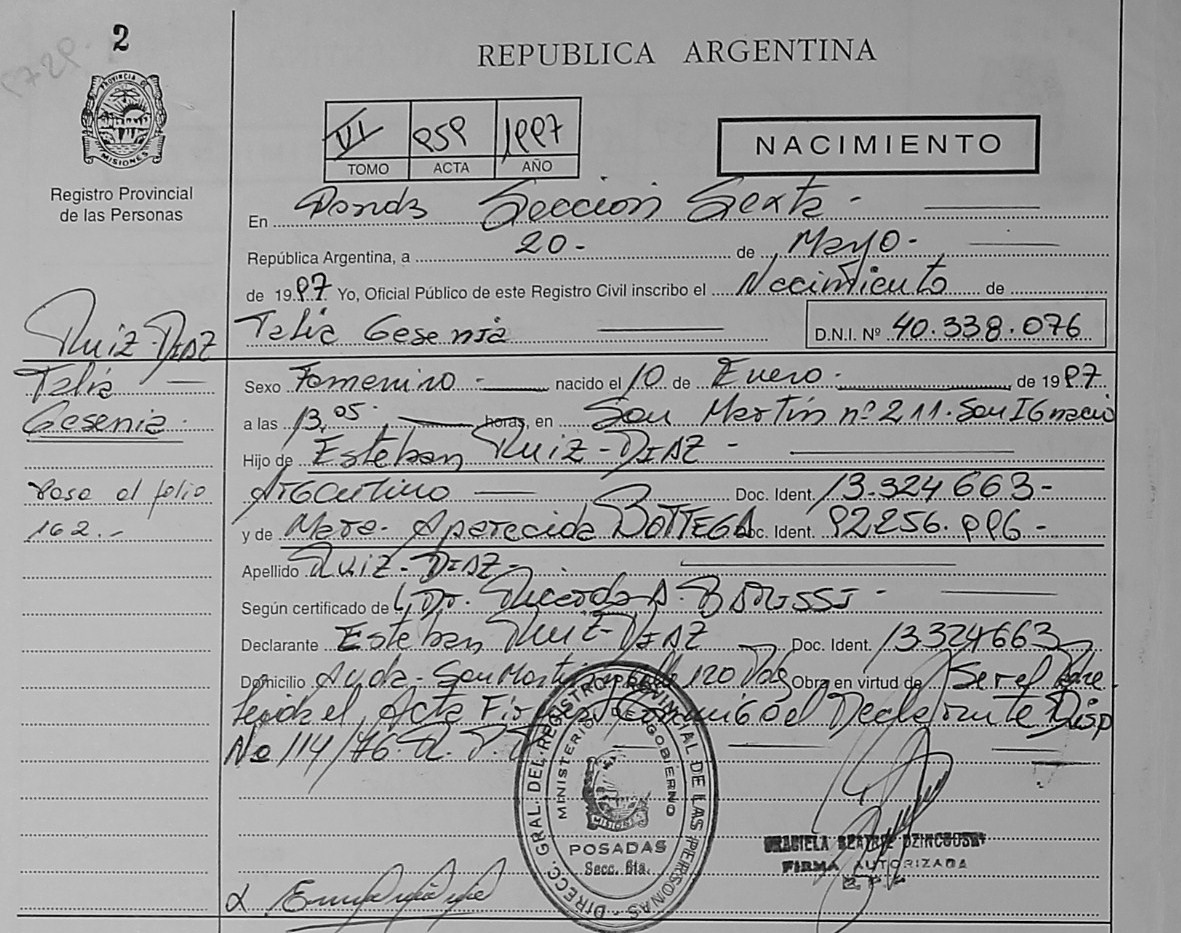 2
REPUBLICA ARGENTINA
PROVINCIA DE
MISIONES
Registro Provincial
de las Personas
VI 959 1997
TOMO ACTA AÑO
NACIMIENTO
En Posadas Sección Sexta -
República Argentina, a 20- de Mayo-
de 1997 Yo, Oficial Público de este Registro Civil inscribo el Nacimiento de
Ruiz-DIAZ
Talia Gesenia D.N.I. Nº 40.338.076
Talia
Gesenia
Sexo Femenino - nacido el 10 de Enero- de 1997
a las 13,05 horas, en San Martín nº 211. San IGnacio
Hijo de Esteban Ruiz-DIAZ -
Pasa al folio
162.-
Argentino Doc. Ident. 13.324 663-
y de Aparecida BOTTEGA Doc. Ident. 92256.996-
Apellido RUIZ-DIAZ-
Según certificado de Dr. Ricardo A.
Declarante Esteban Ruiz-DIAZ Doc. Ident. 13324663
Domicilio Avda- San Martin 120 Obra en virtud de Ser el Padre
Leida el Acta el Declarante Disp
No 114/76
DIRECC. GRAL. DEL REGISTRO PROVINCIAL DE LAS PERSONAS
MINISTERIO DE GOBIERNO
MISIONES
POSADAS
Secc. 6ta.
GRACIELA BEATRIZ
FIRMA AUTORIZADA